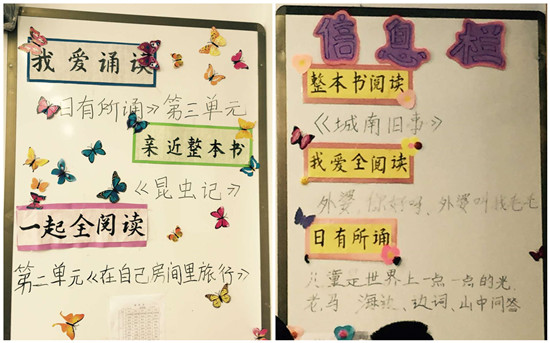 我爱诵读
《日有所诵》第三单元
亲近整本书
《昆虫记》
一起全阅读
第二单元《在自己房间里旅行》
信息栏
整本书阅读
《城南旧事》
我爱全阅读
外婆,你好吗、外婆叫我毛毛
日有所诵
儿童是世界上一点一点的光
老马 海韵、边词、山中问答